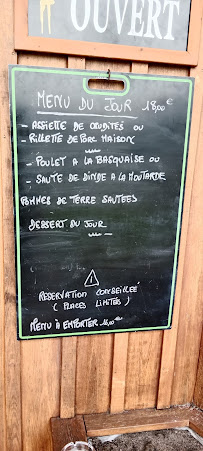 OUVERT
MENU DU JOUR 18,00€
- ASSIETTE DE CRUDITÉS OU
- RILLETTE DE PORC MAISON
- POULET A LA BASQUAISE OU
- SAUTE DE DINDE A LA MOUTARDE
POMMES DE TERRE SAUTEES
DESSERT DU JOUR
RESERVATION CONSEILLÉE
( PLACES LIMITÉS )
MENU A EMPORTER 16,00€